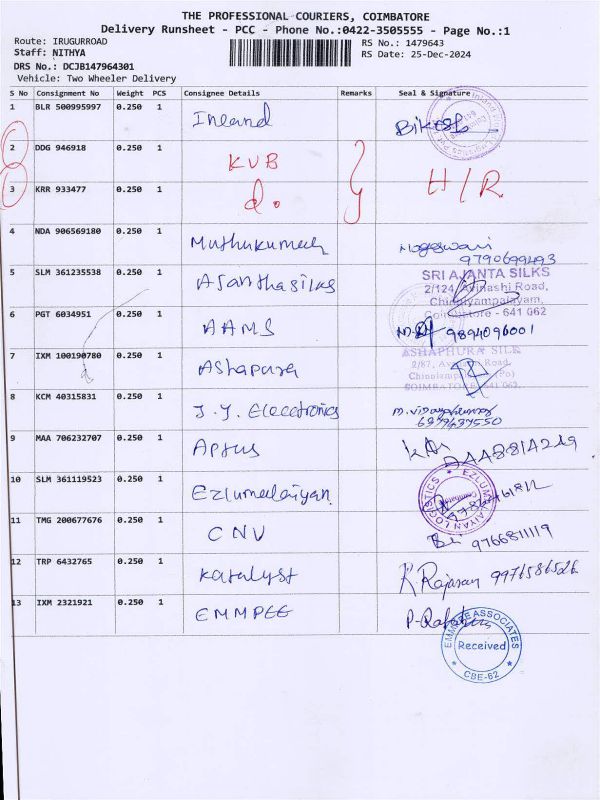 THE PROFESSIONAL COURIERS, COIMBATORE
Delivery Runsheet - PCC - Phone No.:0422-3505555 - Page No.:1
Route: IRUGURROAD
Staff: NITHYA
DRS No.: DCJB147964301
Vehicle: Two Wheeler Delivery
RS No.: 1479643
RS Date: 25-Dec-2024
S No Consignment No Weight PCS Consignee Details Remarks Seal & Signature
1 BLR 500995997 0.250 1 Inland
2 DDG 946918 0.250 1 KVB H/R
3 KRR 933477 0.250 1 d.
4 NDA 906569180 0.250 1 Muthukumar
9790699493
5 SLM 361235538 0.250 1 Asanthasilks
SRI AJANTA SILKS
2/124, Avinashi Road,
Chinniyampalayam,
Coimbatore - 641 062
6 PGT 6034951 0.250 1 AAMS 9894096001
7 IXM 100190780 0.250 1 Ashapura
ASHAPHURA SILK
2/87, Road,
(Po)
COIMBATORE 641 062.
8 KCM 40315831 0.250 1 J.Y. Electronics
9 MAA 706232707 0.250 1 Aptus
10 SLM 361119523 0.250 1 Ezlumalaiyan
EZLUMALAIYAN LOGISTICS
11 TMG 200677676 0.250 1 CNV 9766811119
12 TRP 6432765 0.250 1 Katalyst K. Rajasan 9976586526
13 IXM 2321921 0.250 1 EMMPEE
EMMPEE ASSOCIATES
Received
CBE-62